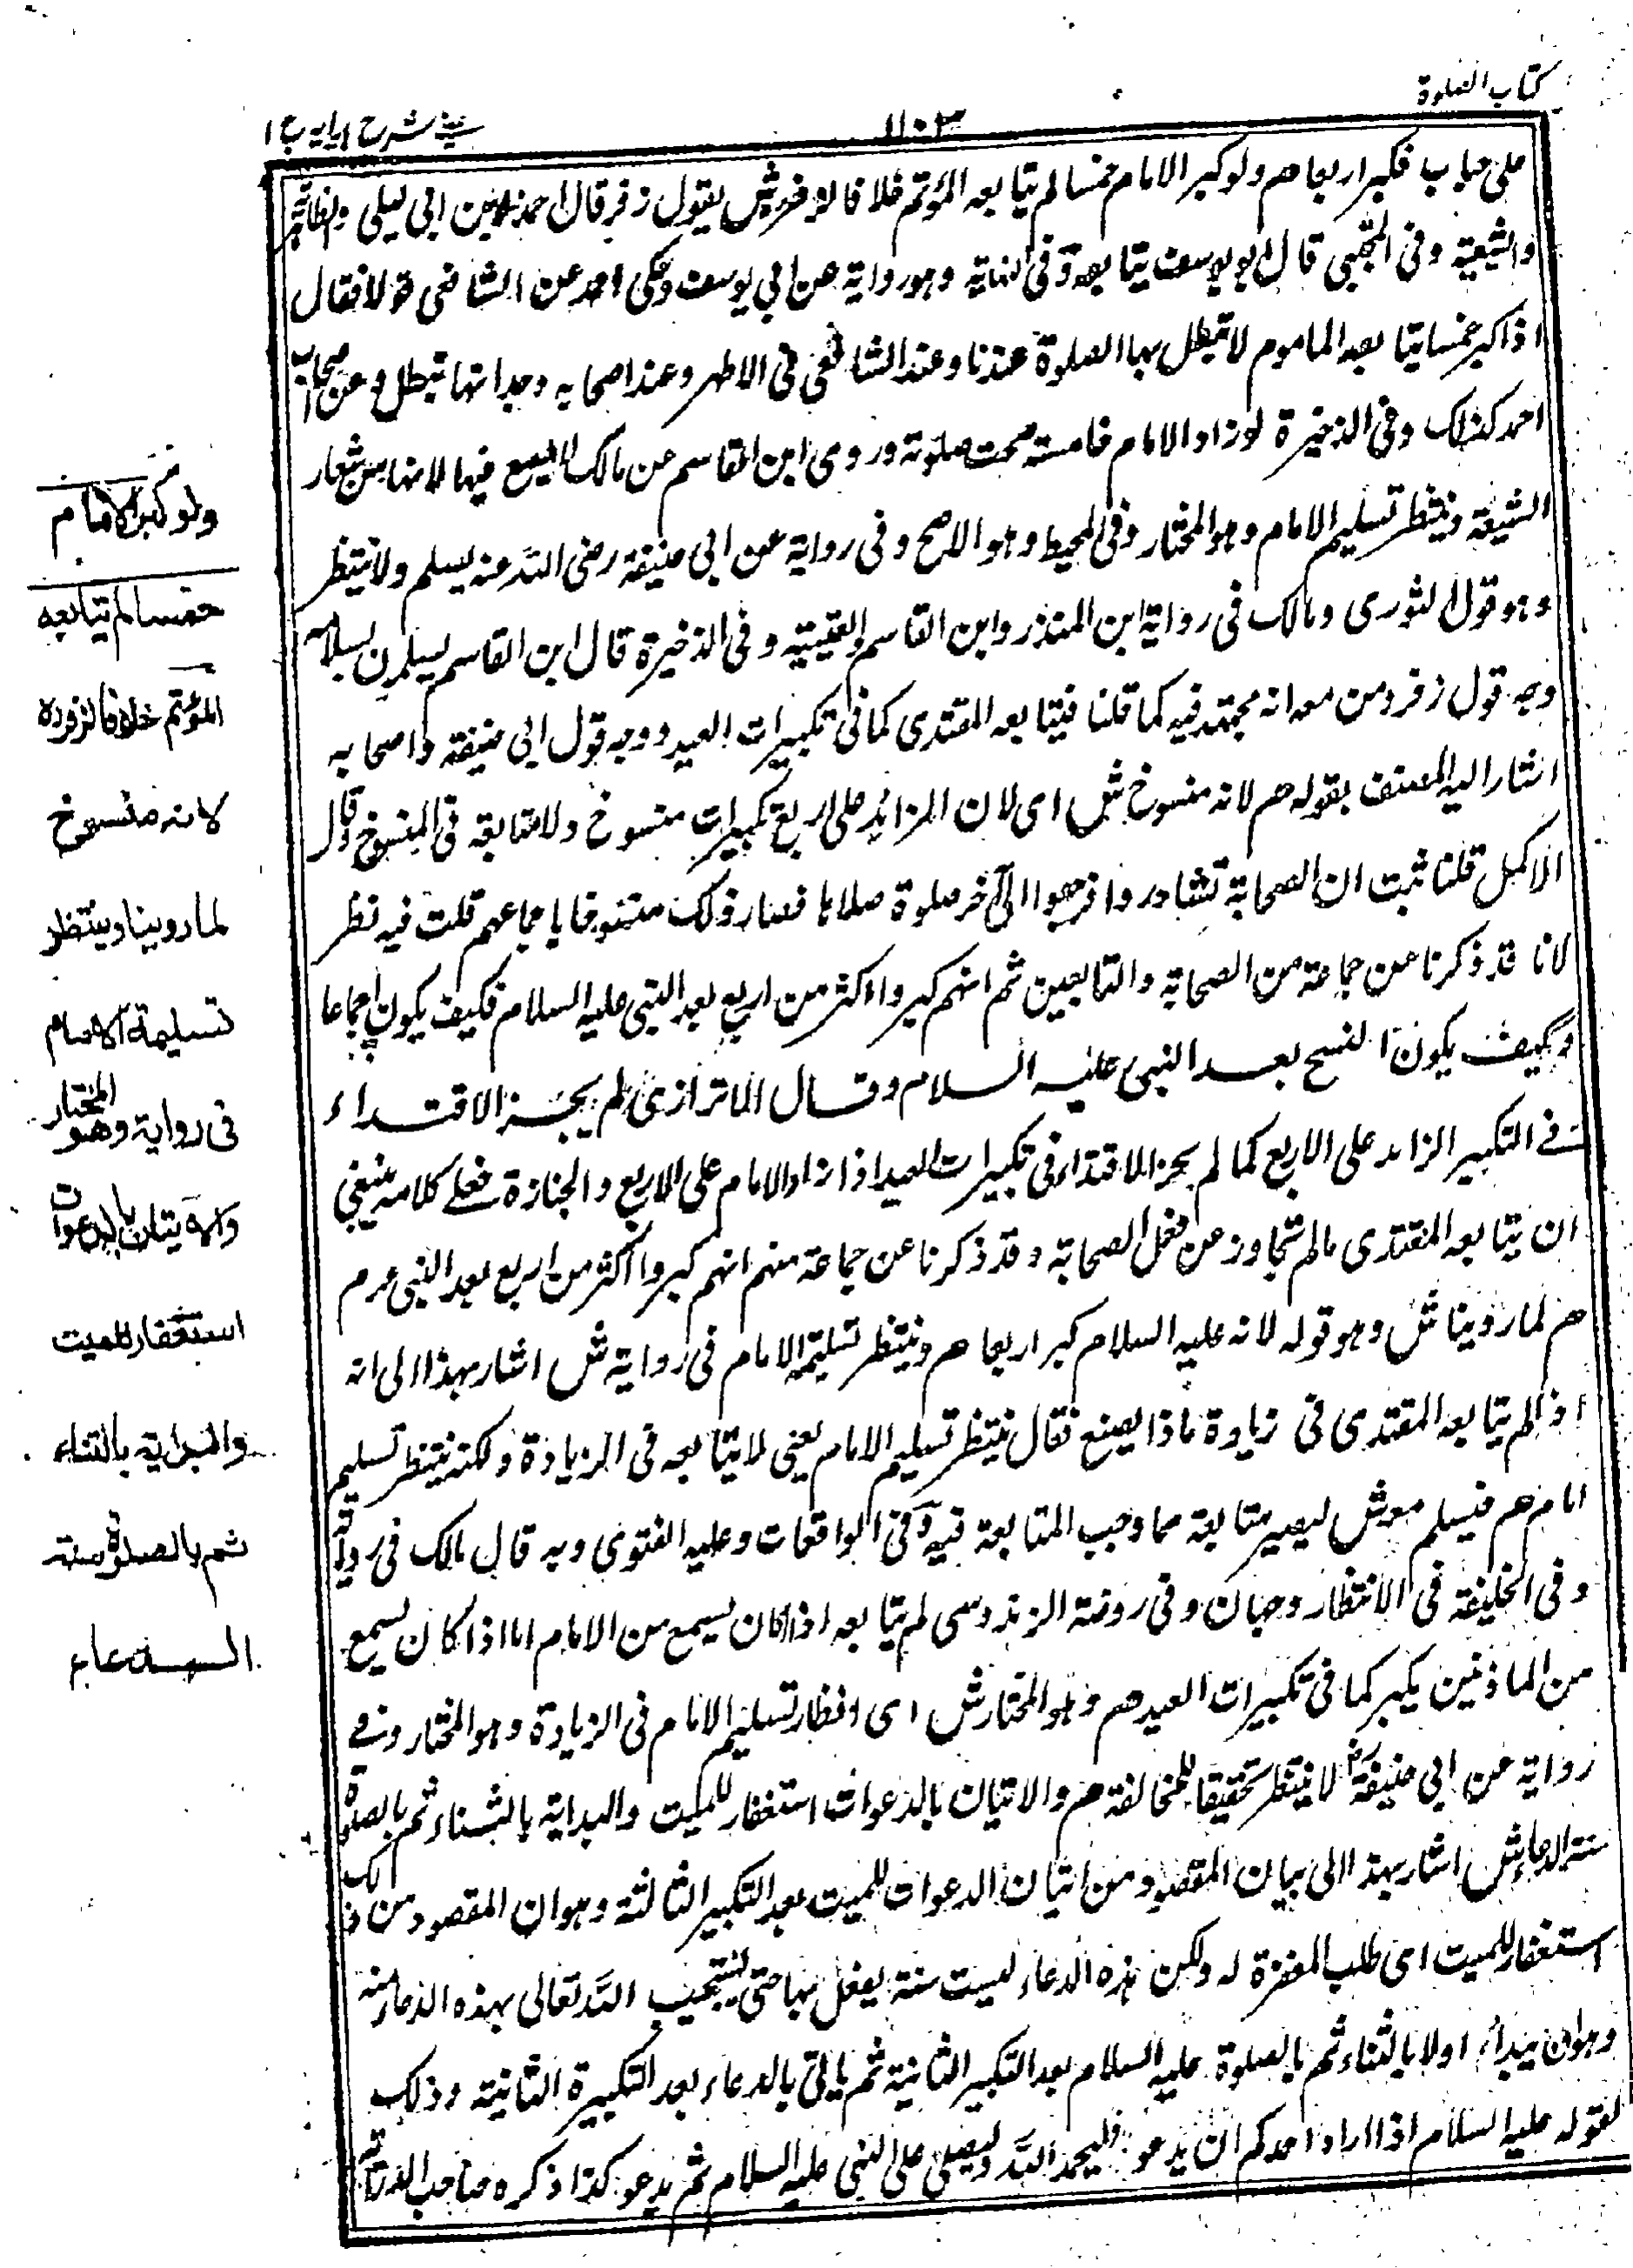 كتاب الصلوة
١١٠٣
عينى شرح هدايه ج ١
على جناب فكبر اربعا هم ولو كبر الامام خمسا لم يتابعه المؤتم خلافا لزفر ش بقول زفر قال احمد وابن ابى ليلى والظاهرية
والشيعية وفى المجتبى قال ابو يوسف يتابعه وفى النهاية وهو رواية عن ابى يوسف وحكى احمد عن الشافعى قولا فقال
اذا كبر خمسا يتابعه الماموم لا تبطل بها الصلوة عندنا وعند الشافعى فى الاظهر وعند اصحابه وجد انها تبطل وعن اصحاب
احمد كذلك وفى الذخيرة لو زاد الامام خامسة صحت صلوته وروى ابن القاسم عن مالك لا يتبع فيها لانها من شعار
الشيعة وينتظر تسليم الامام وهو المختار وفى المحيط وهو الاصح وفى رواية عن ابى حنيفة رضى الله عنه يسلم ولا ينتظر
وهو قول الثورى ومالك فى رواية ابن المنذر وابن القاسم والعتيبية وفى الذخيرة قال ابن القاسم يسلمون بسلامه
وجه قول زفر ومن معه انه مجتهد فيه كما قلنا فيتابعه المقتدى كما فى تكبيرات العيد ووجه قول ابى حنيفة واصحابه
اشار اليه المصنف بقوله هم لانه منسوخ ش اى لان الزائد على اربع تكبيرات منسوخ ولا متابعة فى المنسوخ وقال
الاكمل قلنا ثبت ان الصحابة تشاوروا فرجعوا الى آخر صلوة صلاها فصار ذلك منسوخا باجماعهم قلت فيه نظر
لانا قد ذكرنا عن جماعة من الصحابة والتابعين ثم انهم كبروا اكثر من اربع بعد النبى عليه السلام فكيف يكون اجماعا
وكيف يكون النسخ بعد النبى عليه السلام وقال الماترازى لم يجز الاقتداء
فى التكبير الزائد على الاربع كما لم يجز الاقتداء فى تكبيرات العيد اذا زاد الامام على الاربع والجنازة فعلى كلامه ينبغى
ان يتابعه المقتدى مالم يتجاوز عن فعل الصحابة وقد ذكرنا عن جماعة منهم انهم كبروا اكثر من اربع بعد النبى عم م
هم لما روينا ش وهو قوله لانه عليه السلام كبر اربعا هم وينتظر تسليمة الامام فى رواية ش اشار بهذا الى انه
اذا لم يتابعه المقتدى فى زيادة ماذا يصنع فقال ينتظر تسليم الامام يعنى لا يتابعه فى الزيادة ولكنه ينتظر تسليم
امام هم فيسلم معه ش ليصير متابعة مما وجب المتابعة فيه وفى الواقعات وعليه الفتوى وبه قال مالك فى رواية
وفى الخليفة فى الانتظار وجهان وفى روضة الزندوسى لم يتابعه اذا كان يسمع من الامام اما اذا كان يسمع
من الماذنين يكبر كما فى تكبيرات العيد هم وهو المختار ش اى انتظار تسليم الامام فى الزيادة وهو المختار وفى
رواية عن ابى حنيفة رض لا ينتظر تحقيقا للمخالفة هم والاتيان بالدعوات استغفار للميت والبداية بالثناء ثم بالصلوة
سنة الدعاء ش اشار بهذا الى بيان المقصود من اتيان الدعوات للميت بعد التكبير الثالثة وهو ان المقصود من ذلك
استغفار للميت اى طلب المغفرة له ولكن هذه الدعاء ليست سنة يفعل بها حتى يستجيب الله تعالى بهذه الدعاء منه
وهو ان يبدأ اولا بالثناء ثم بالصلوة عليه السلام بعد التكبير الثانية ثم ياتى بالدعاء بعد التكبيرة الثانية وذلك
لقوله عليه السلام اذا اراد احدكم ان يدعو فليحمد الله وليصلى على النبى عليه السلام ثم يدعو كذا ذكره صاحب الدراية
ولو كبر الامام
خمسا لم يتابعه
المؤتم خلافا لزفر ره
لانه منسوخ
لما روينا وينتظر
تسليمة الامام
فى رواية وهو المختار
والاتيان بالدعوات
استغفار للميت
والبداية بالثناء
ثم بالصلوة سنة
الدعاء